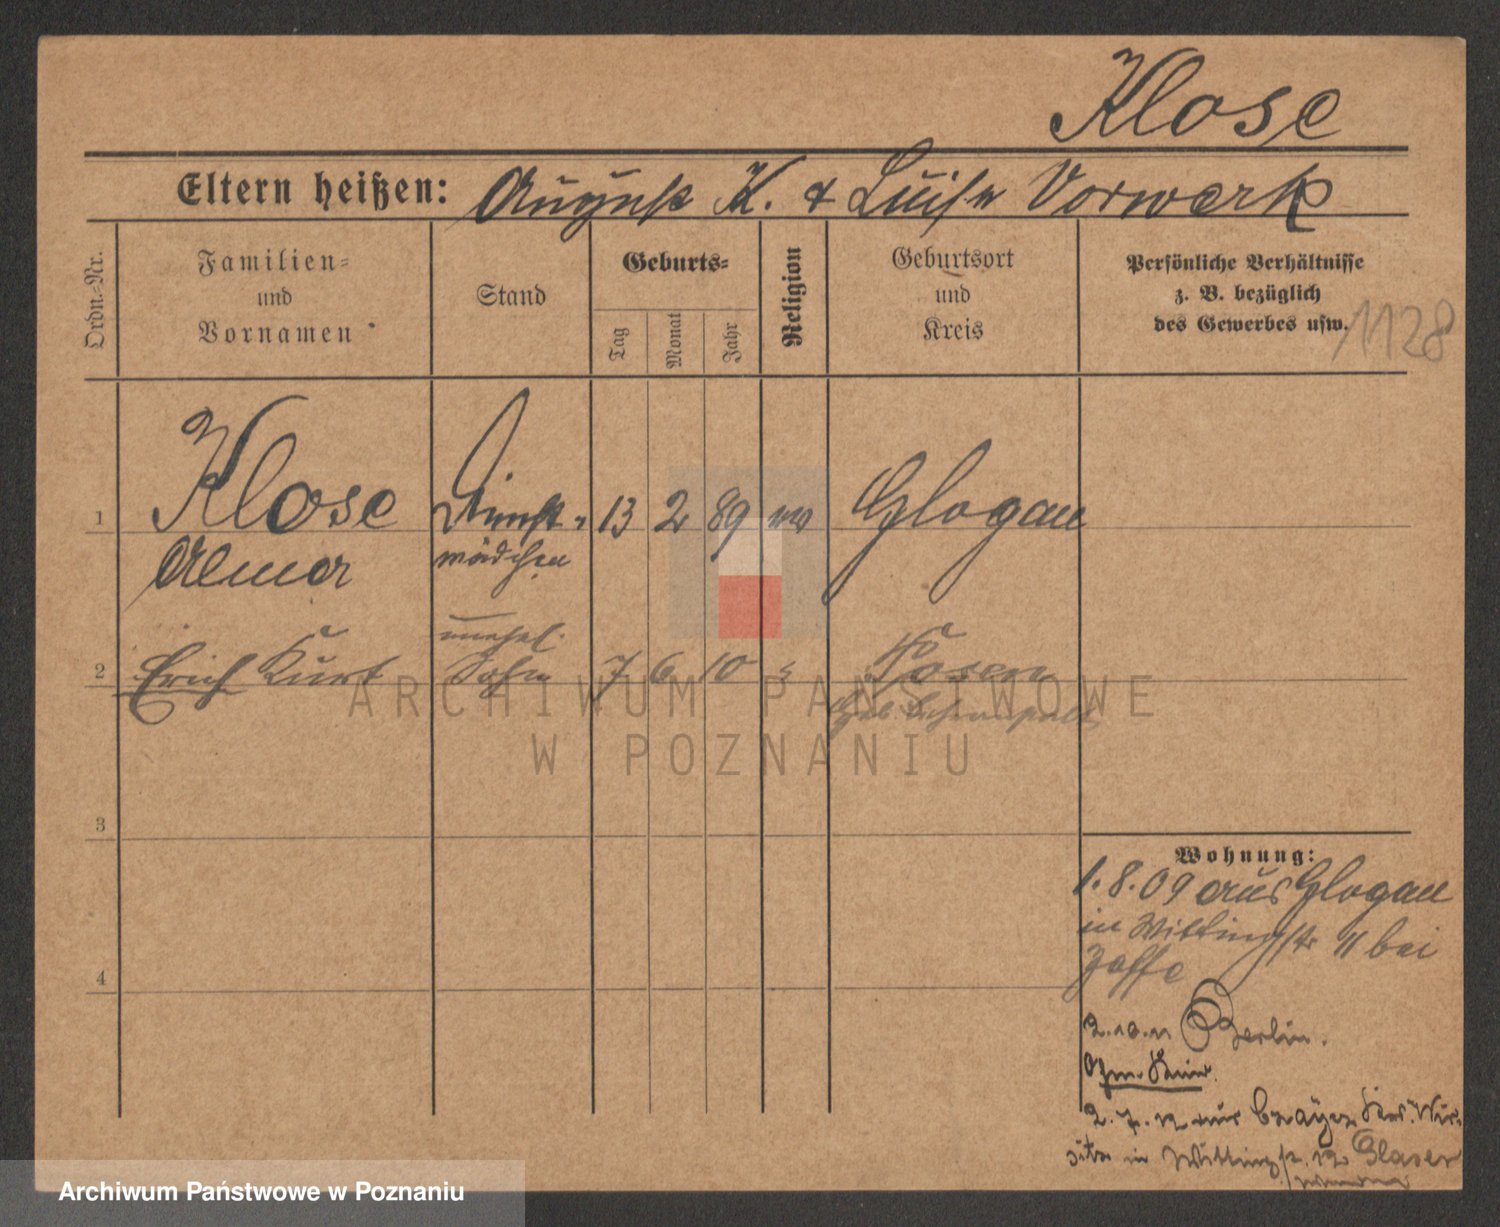 Klose
Eltern heißen: August K. & Luise Vorwerk
Ordn.-Nr.
Familien=
und
Vornamen
Stand
Geburts=
Tag
Monat
Jahr
Religion
Geburtsort
und
Kreis
Persönliche Verhältnisse
z. B. bezüglich
des Gewerbes usw.
1128
1 Klose Dienst- 13 2 89 ev Glogau
mädchen
unehel.
2 Erich Kurt Sohn 7 6 10 Posen
3
Wohnung:
1.8.09 aus Glogau
in Wittingstr 11 bei
4
2.10.11 Berlin.
2.7.12 aus
in Wittingstr. 12 Glaser
ARCHIWUM PAŃSTWOWE
W POZNANIU
Archiwum Państwowe w Poznaniu